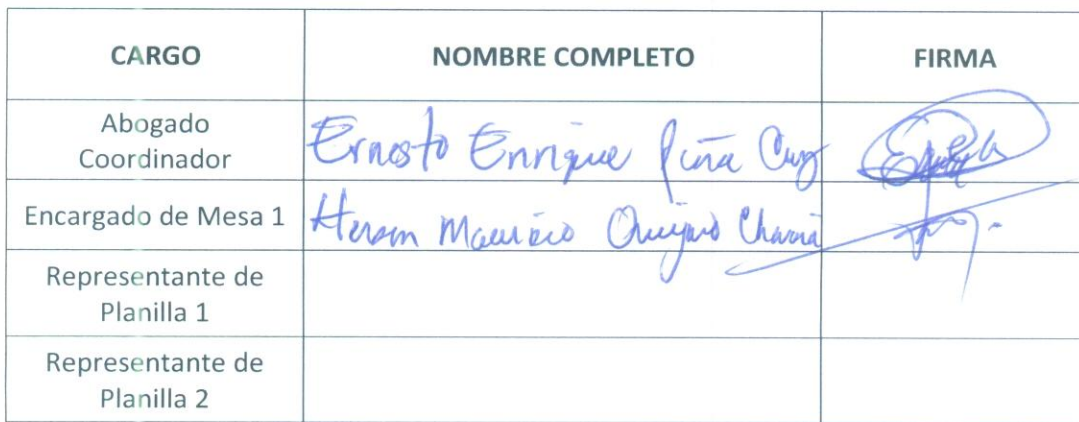 CARGO NOMBRE COMPLETO FIRMA
Abogado
Coordinador
Ernesto Enrique Piña Cruz
Encargado de Mesa 1 Herson Mauricio
Representante de
Planilla 1
Representante de
Planilla 2